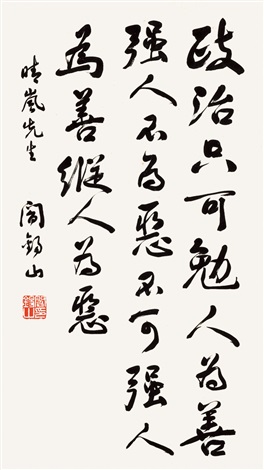 政治只可勉人為善
强人不為惡不可强人
為善縱人為惡
晴嵐先生 閻錫山